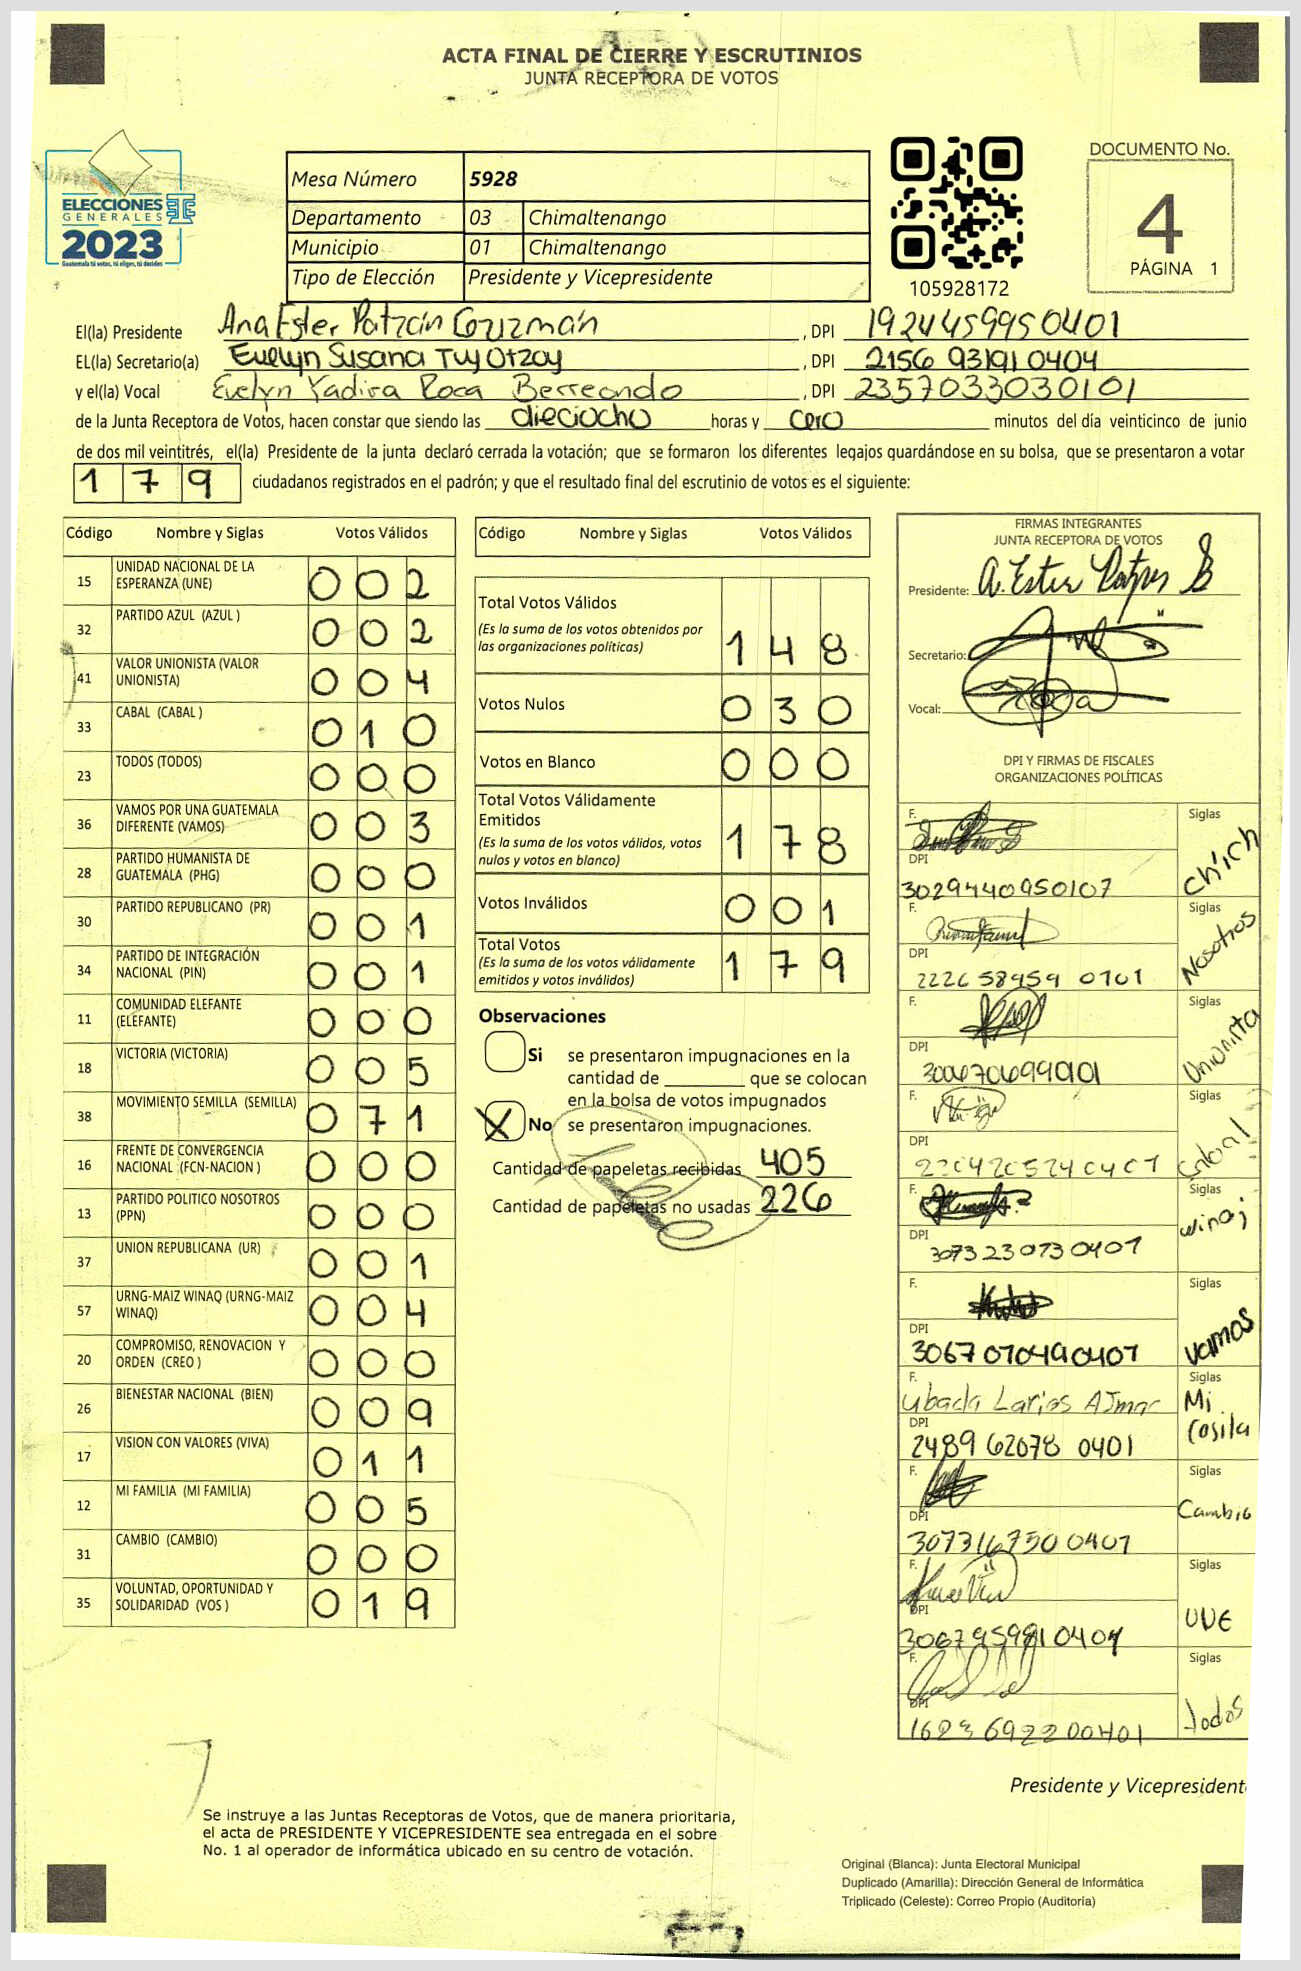 ACTA FINAL DE CIERRE Y ESCRUTINIOS
JUNTA RECEPTORA DE VOTOS
ELECCIONES
GENERALES
2023
Guatemala tú votas, tú eliges, tú decides
Mesa Número 5928
Departamento 03 Chimaltenango
Municipio 01 Chimaltenango
Tipo de Elección Presidente y Vicepresidente
105928172
DOCUMENTO No.
4
PÁGINA 1
El(la) Presidente Ana Ester Patzán Guzmán, DPI 1924459950401
EL(la) Secretario(a) Evelyn Susana Tuy Otzoy, DPI 2156 93191 0404
y el(la) Vocal Evelyn Yadira Roca Berreondo, DPI 2357033030101
de la Junta Receptora de Votos, hacen constar que siendo las dieciocho horas y cero minutos del día veinticinco de junio
de dos mil veintitrés, el(la) Presidente de la junta declaró cerrada la votación; que se formaron los diferentes legajos guardándose en su bolsa, que se presentaron a votar
179 ciudadanos registrados en el padrón; y que el resultado final del escrutinio de votos es el siguiente:
Código Nombre y Siglas Votos Válidos
15 UNIDAD NACIONAL DE LA ESPERANZA (UNE) 002
32 PARTIDO AZUL (AZUL ) 002
41 VALOR UNIONISTA (VALOR UNIONISTA) 004
33 CABAL (CABAL ) 010
23 TODOS (TODOS) 000
36 VAMOS POR UNA GUATEMALA DIFERENTE (VAMOS) 003
28 PARTIDO HUMANISTA DE GUATEMALA (PHG) 000
30 PARTIDO REPUBLICANO (PR) 001
34 PARTIDO DE INTEGRACIÓN NACIONAL (PIN) 001
11 COMUNIDAD ELEFANTE (ELEFANTE) 000
18 VICTORIA (VICTORIA) 005
38 MOVIMIENTO SEMILLA (SEMILLA) 071
16 FRENTE DE CONVERGENCIA NACIONAL (FCN-NACION ) 000
13 PARTIDO POLITICO NOSOTROS (PPN) 000
37 UNION REPUBLICANA (UR) 001
57 URNG-MAIZ WINAQ (URNG-MAIZ WINAQ) 004
20 COMPROMISO, RENOVACION Y ORDEN (CREO ) 000
26 BIENESTAR NACIONAL (BIEN) 009
17 VISION CON VALORES (VIVA) 011
12 MI FAMILIA (MI FAMILIA) 005
31 CAMBIO (CAMBIO) 000
35 VOLUNTAD, OPORTUNIDAD Y SOLIDARIDAD (VOS ) 019
Código Nombre y Siglas Votos Válidos
Total Votos Válidos
(Es la suma de los votos obtenidos por
las organizaciones políticas) 148
Votos Nulos 030
Votos en Blanco 000
Total Votos Válidamente
Emitidos
(Es la suma de los votos válidos, votos
nulos y votos en blanco) 178
Votos Inválidos 001
Total Votos
(Es la suma de los votos válidamente
emitidos y votos inválidos) 179
Observaciones
Si se presentaron impugnaciones en la
cantidad de ________ que se colocan
en la bolsa de votos impugnados
X No se presentaron impugnaciones.
Cantidad de papeletas recibidas 405
Cantidad de papeletas no usadas 226
FIRMAS INTEGRANTES
JUNTA RECEPTORA DE VOTOS
Presidente:
Secretario:
Vocal:
DPI Y FIRMAS DE FISCALES
ORGANIZACIONES POLÍTICAS
F. Siglas
DPI 3029440950107
F. Siglas Nosotros
DPI 2226 58959 0101
F. Siglas Unionista
DPI
F. Siglas
DPI
F. Siglas winaj
DPI 3073230730401
F. Siglas vamos
DPI 3067070490407
F. Siglas Mi
DPI 2489 62078 0401
F. Siglas Cambio
DPI 3073167500401
F. Siglas UNE
DPI
F. Siglas todos
DPI 1623 692200401
Presidente y Vicepresident
Se instruye a las Juntas Receptoras de Votos, que de manera prioritaria,
el acta de PRESIDENTE Y VICEPRESIDENTE sea entregada en el sobre
No. 1 al operador de informática ubicado en su centro de votación.
Original (Blanca): Junta Electoral Municipal
Duplicado (Amarilla): Dirección General de Informática
Triplicado (Celeste): Correo Propio (Auditoría)